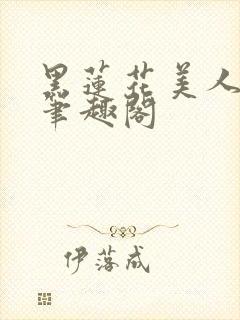 黑蓮花美人
筆趣閣
伊落成